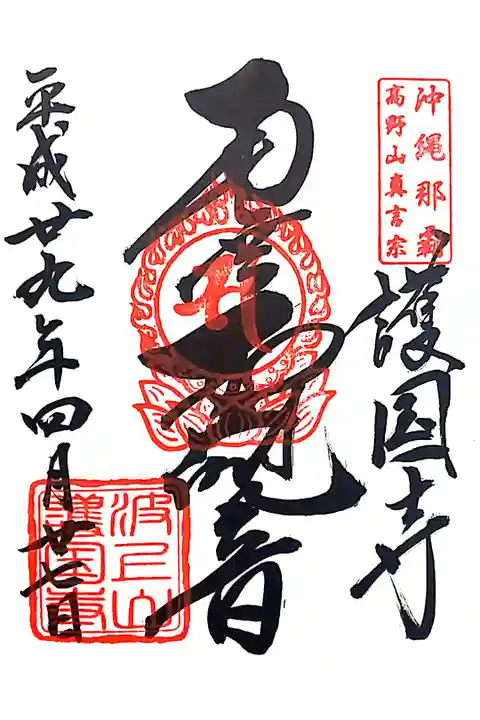 沖縄那覇
高野山真言宗
護国寺
観音
波上山
護国寺
平成廿九年四月廿七日